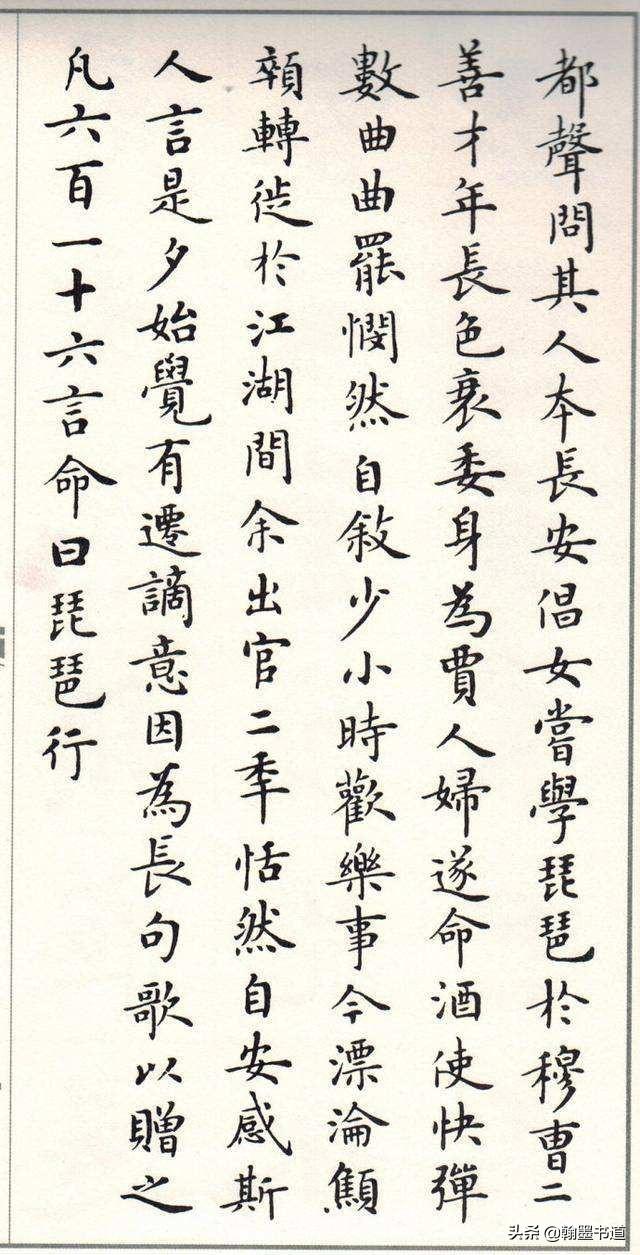 都聲問其人本長安倡女嘗學琵琶於穆曹二
善才年長色衰委身為賈人婦遂命酒使快彈
數曲曲罷憫然自敘少小時歡樂事今漂淪顦
顇轉徙於江湖間余出官二秊恬然自安感斯
人言是夕始覺有遷謫意因為長句歌以贈之
凡六百一十六言命曰琵琶行
头条 @翰墨书道